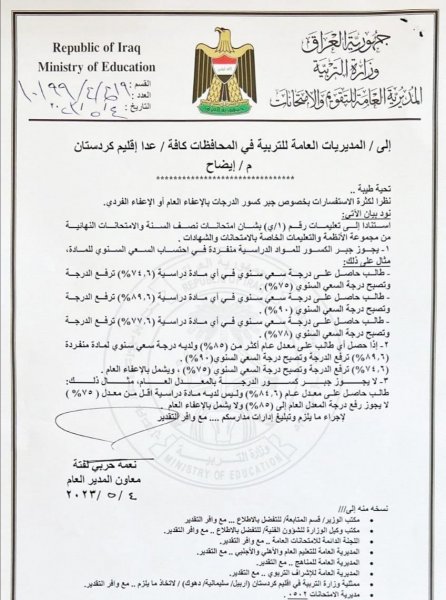 Republic of Iraq
Ministry of Education
جمهورية العراق
وزارة التربية
المديرية العامة للتقويم والامتحانات
القسم:
العدد:
التاريخ:
إلى / المديريات العامة للتربية في المحافظات كافة / عدا إقليم كردستان
م / إيضاح
تحية طيبة ..
نظرا لكثرة الاستفسارات بخصوص جبر كسور الدرجات بالإعفاء العام أو الإعفاء الفردي.
نود بيان الآتي:
استنادا إلى تعليمات رقم (١/ي) بشأن امتحانات نصف السنة والامتحانات النهائية
من مجموعة الأنظمة والتعليمات الخاصة بالامتحانات والشهادات .
١- يجوز جبر الكسور للمواد الدراسية منفردة في احتساب السعي السنوي للمادة،
مثال على ذلك:
- طالب حاصل على درجة سعي سنوي في أي مادة دراسية (٧٤,٦%) ترفع الدرجة
وتصبح درجة السعي السنوي (٧٥%) .
- طالب حاصل على درجة سعي سنوي في أي مادة دراسية (٨٩,٦%) ترفع الدرجة
وتصبح درجة السعي السنوي (٩٠%) .
- طالب حاصل على درجة سعي سنوي في أي مادة دراسية (٧٧,٦%) ترفع الدرجة
وتصبح درجة السعي السنوي (٧٨%) .
٢- إذا حصل أي طالب على معدل عام أكثر من (٨٥%) ولديه درجة سعي سنوي لمادة منفردة
(٨٩,٦%) ترفع الدرجة وتصبح درجة السعي السنوي (٩٠%) .
(٧٤,٦%) ترفع الدرجة وتصبح درجة السعي السنوي (٧٥%) ، ويشمل بالإعفاء العام .
٣- لا يجوز جبر كسور الدرجة بالمعدل العام، مثال ذلك:
طالب حاصل على معدل عام (٨٤,٦%) وليس لديه مادة دراسية أقل من معدل (٧٥%)
لا يجوز رفع درجة المعدل إلى (٨٥%) ولا يشمل بالإعفاء العام .
لإجراء ما يلزم وتبليغ إدارات مدارسكم .... مع وافر التقدير
نعمه حربي لفتة
معاون المدير العام
٢٠٢٣/٥/٤
نسخه منه إلى///
• مكتب الوزير/ قسم المتابعة/ للتفضل بالاطلاع ... مع وافر التقدير.
• مكتب وكيل الوزارة للشؤون الفنية/ للتفضل بالاطلاع .. مع وافر التقدير.
• اللجنة الدائمة للامتحانات العامة .. مع وافر التقدير.
• المديرية العامة للتعليم العام والأهلي والأجنبي .. مع التقدير.
• المديرية العامة للمناهج .. مع التقدير.
• المديرية العامة للإشراف التربوي .. مع التقدير.
• ممثلية وزارة التربية في إقليم كردستان (اربيل/ سليمانية/ دهوك) / لاتخاذ ما يلزم .. مع التقدير.
• مديرية الامتحانات ٠٥٠٢